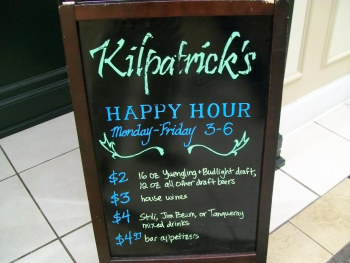 Kilpatrick's
HAPPY HOUR
Monday-Friday 3-6
$2 16 oz Yuengling + Budlight draft,
12 oz all other draft beers
$3 house wines
$4 Stoli, Jim Beam, or Tanqueray
mixed drinks
$4.50 bar appetizers